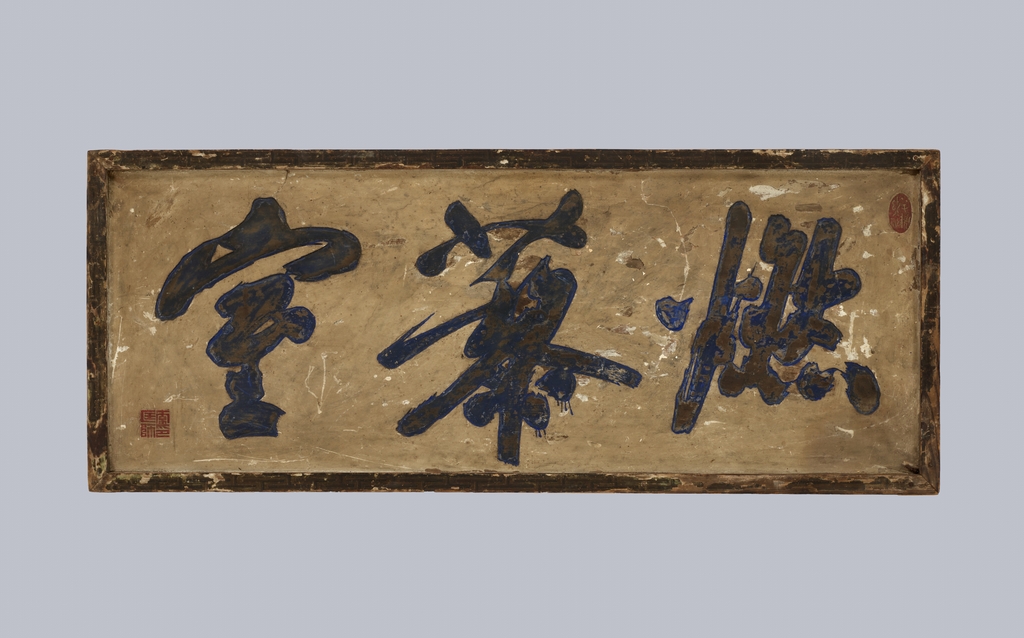 燃藜室